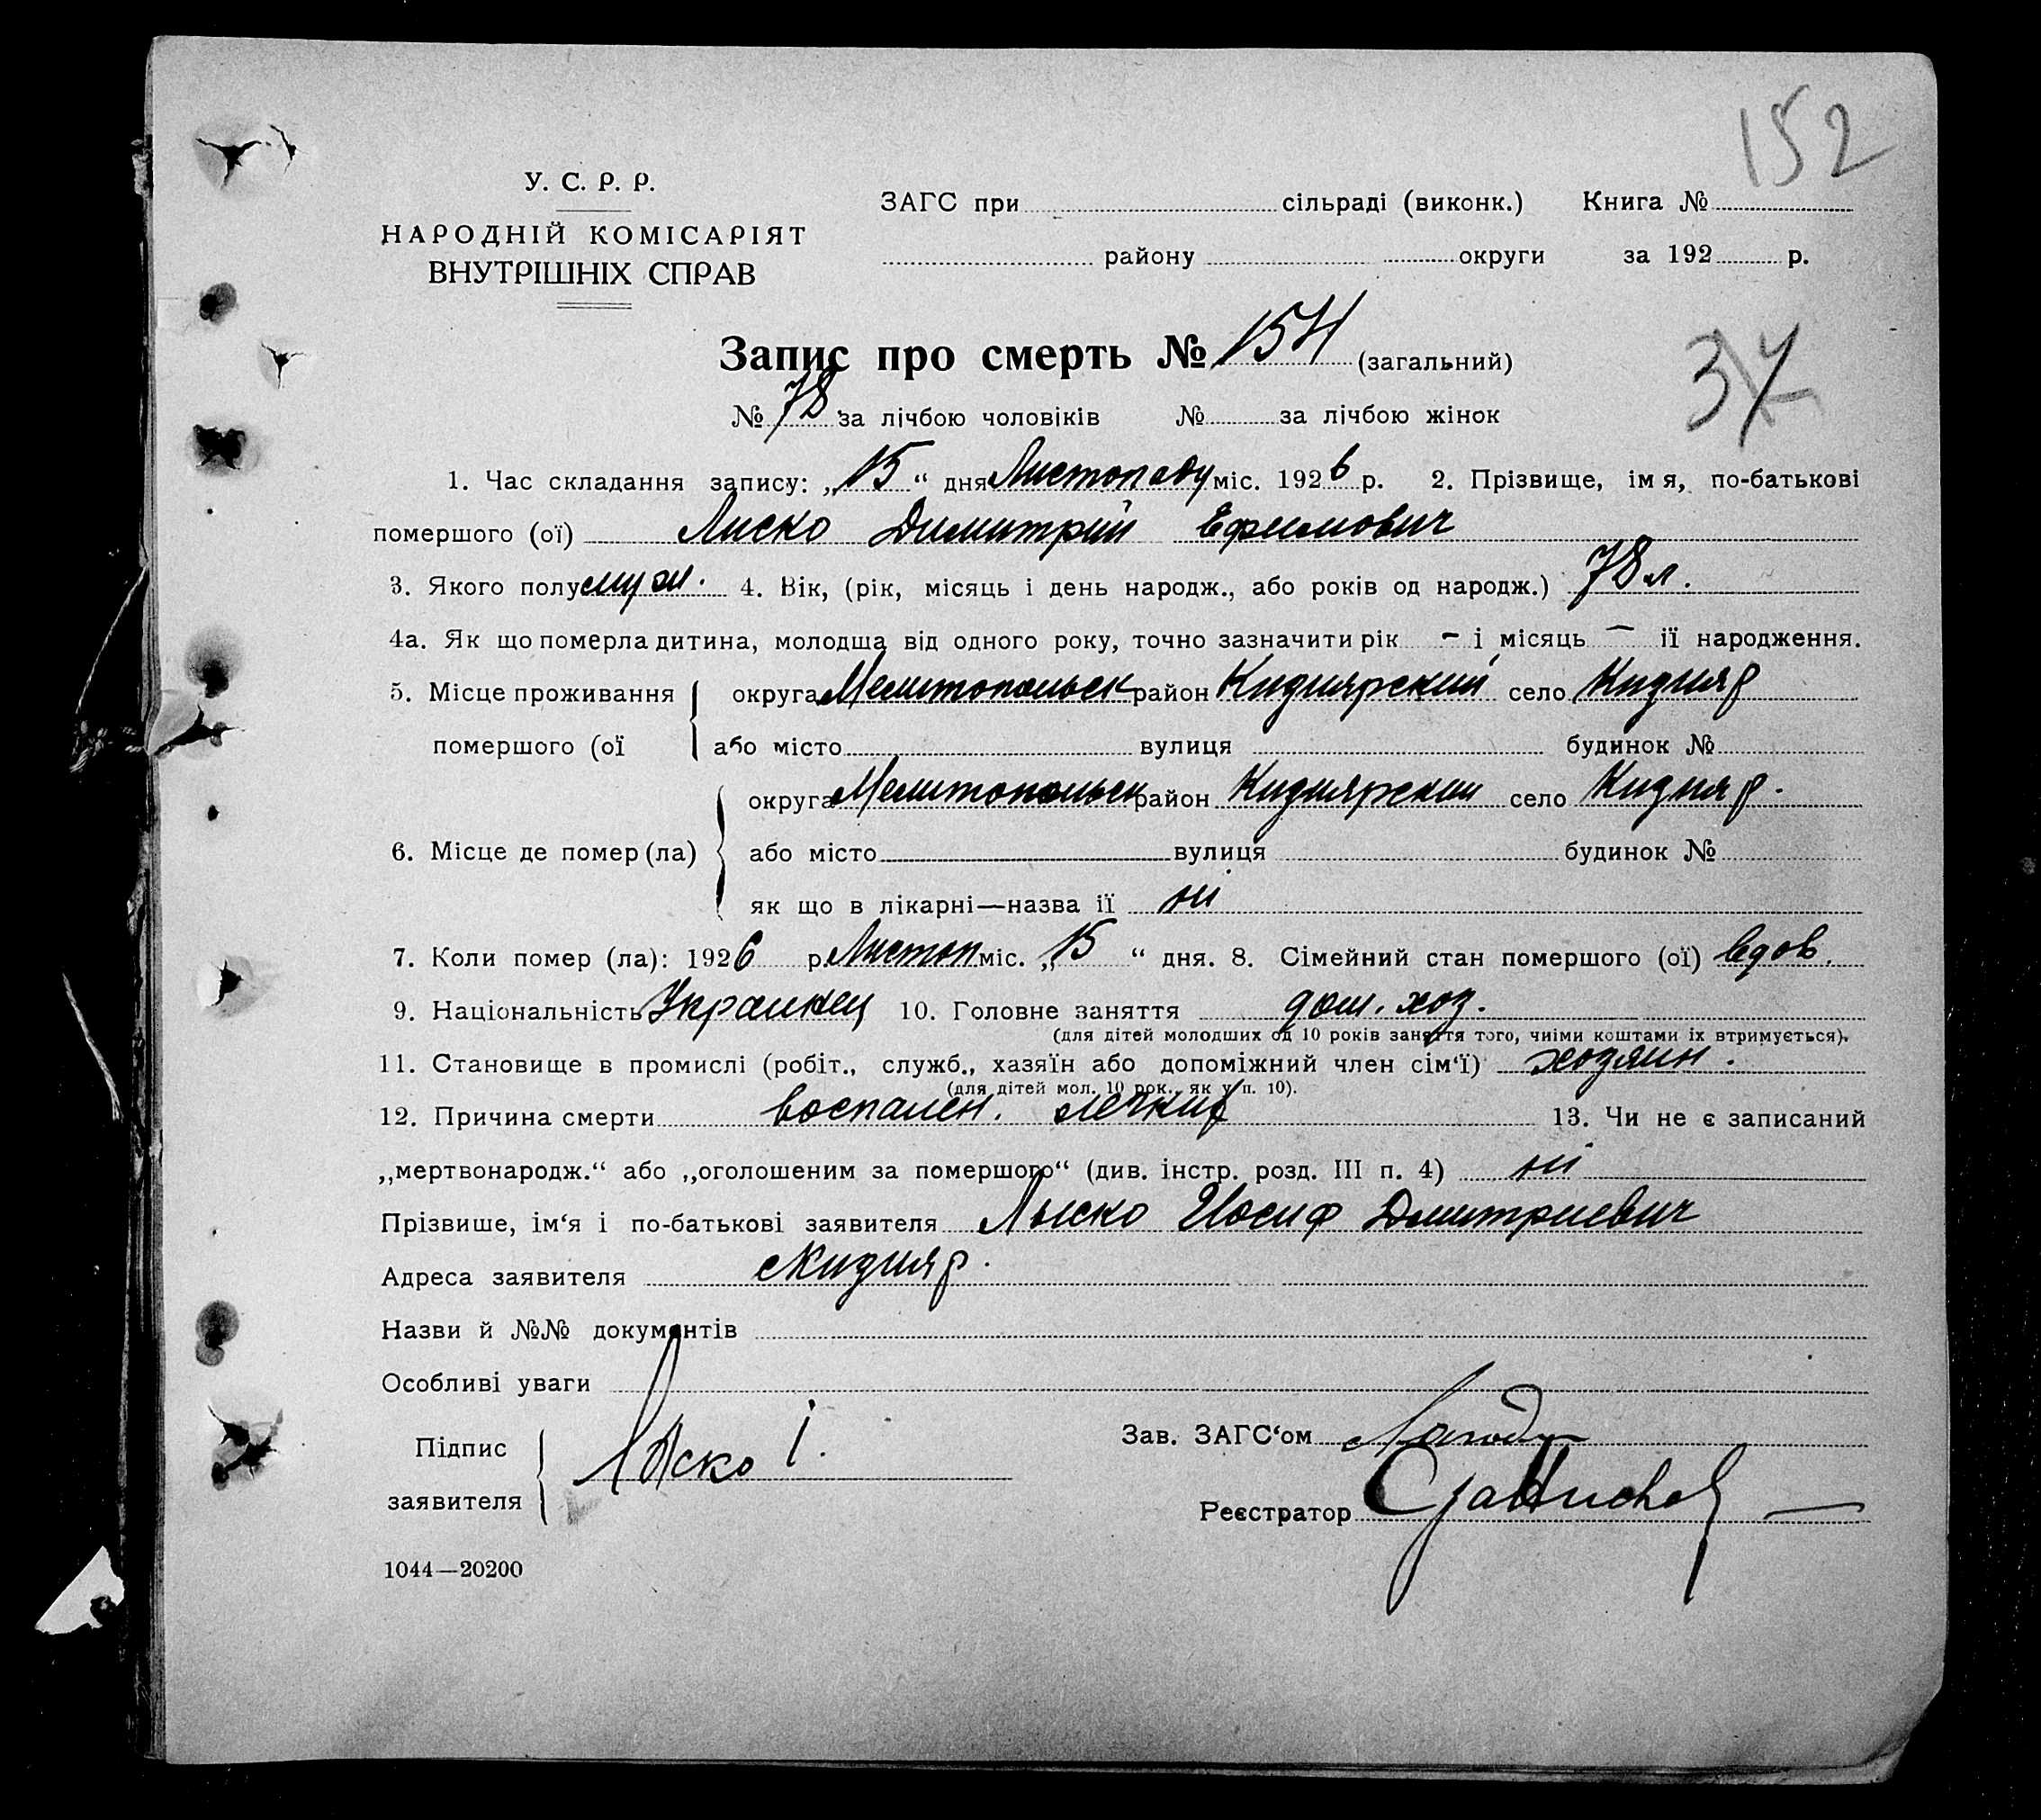 152
У. С. Р. Р.
НАРОДНІЙ КОМІСАРІЯТ
ВНУТРІШНІХ СПРАВ
ЗАГС при сільраді (виконк.) Книга №
району округи за 192 р.
Запис про смерть № 154 (загальний)
37
№ 78 за лічбою чоловіків № за лічбою жінок
1. Час складання запису: „15“ дня Листопаду міс. 1926 р. 2. Прізвище, імя, по-батькові
помершого (ої) Лиско Димитрий Ефимович
3. Якого полу муж. 4. Вік, (рік, місяць і день народж., або років од народж.) 78 л.
4а. Як що померла дитина, молодша від одного року, точно зазначити рік - і місяць - ії народження.
5. Місце проживання округа Мелитопольск район Кизиярский село Кизияр
помершого (ої або місто вулиця будинок №
округа Мелитопольск район Кизиярский село Кизияр.
6. Місце де помер (ла) або місто вулиця будинок №
як що в лікарні—назва ії ні
7. Коли помер (ла): 1926 р. Листоп міс. „15“ дня. 8. Сімейний стан помершого (ої) вдов.
9. Національність Украинец 10. Головне заняття дом. хоз.
(для дітей молодших од 10 років заняття того, чиіми коштами іх втримується).
11. Становище в промислі (робіт., служб., хазяїн або допоміжний член сім‘ї) хозяин.
(для дітей мол. 10 рок., як у п. 10).
12. Причина смерти воспален. легких 13. Чи не є записаний
„мертвонародж.“ або „оголошеним за помершого“ (див. інстр. розд. III п. 4) ні
Прізвише, ім‘я і по-батькові заявителя Лыско Иосиф Димитриевич
Адреса заявителя с Кизияр.
Назви й №№ документів
Особливі уваги
Підпис
заявителя Лыско І.
Зав. ЗАГС‘ом
Реєстратор
1044—20200